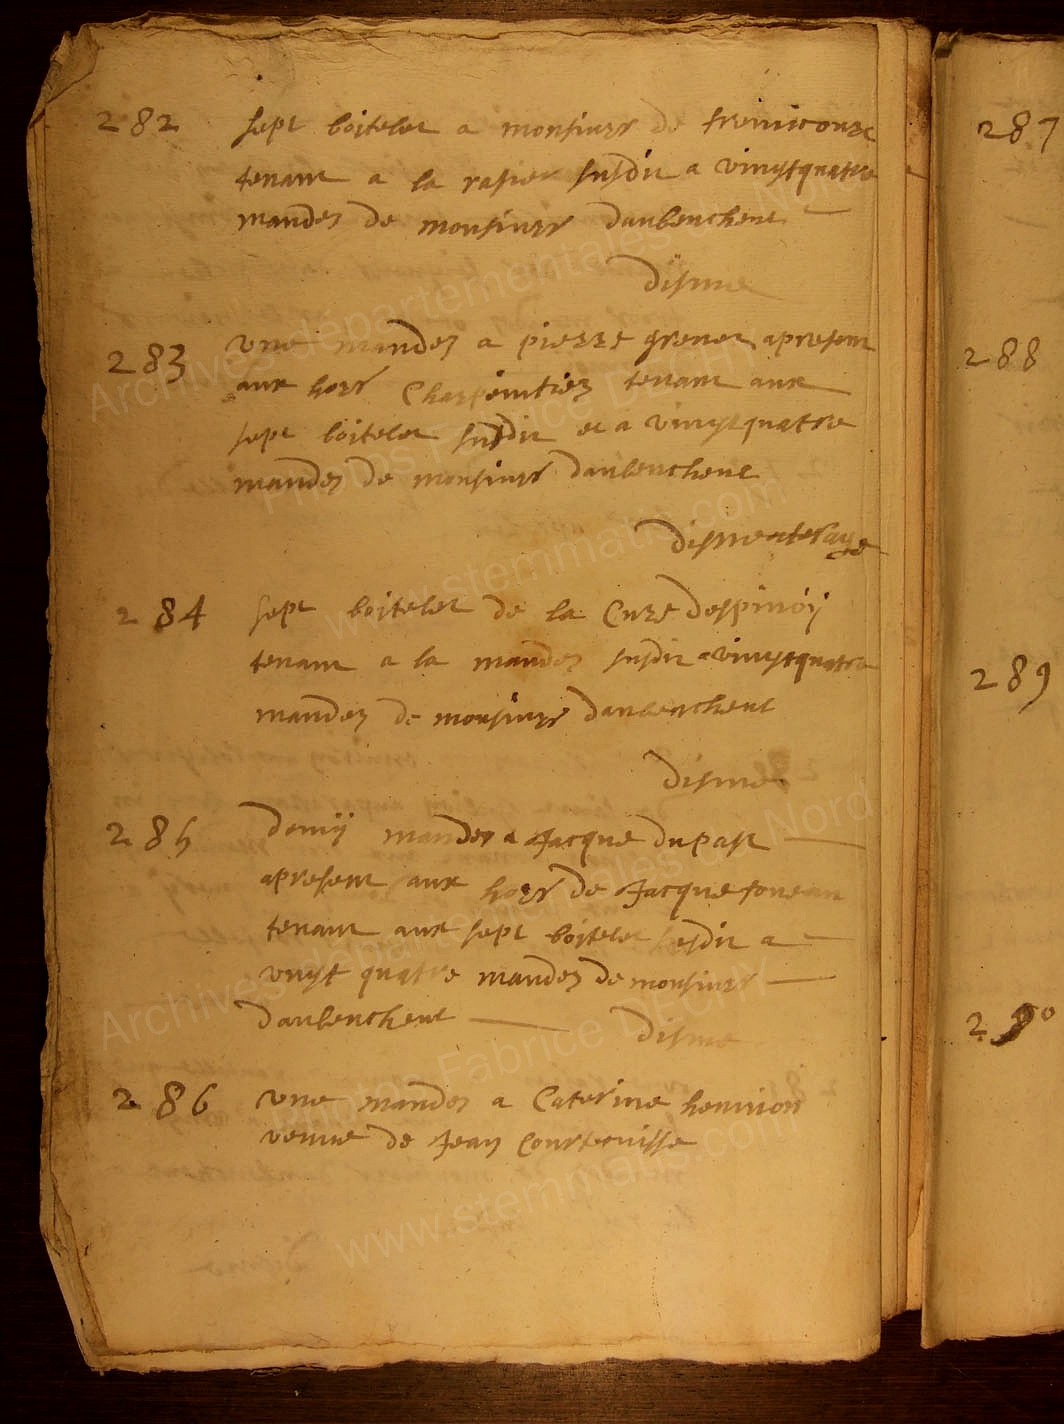 282 sept boitelet a monsiurs de fremicourt
tenant a la rasier susdit a vingtquatre
mandes de monsiurs daubenchent
Disme
283 une mandes a pierre grener apresent
aux hors Charpentiez tenant aux
sept boitelet susdit et a vingtquatre
mandes de monsiurs daubenchent
Disme
284 sept boitelet de la Cure despinoij
tenant a la mandes susdit a vingtquatre
mandes de monsiurs daubenchent
Disme
285 demij mandes a Jacque dupast
apresent aux hors de Jacque
tenant aux sept boitelet susdit a
vingt quatre mandes de monsiurs
daubenchent Disme
286 une mandes a Caterine hennion
veuue de Jean Courtouisse
287
288
289
290
Archives départementales du Nord
Photos Fabrice DEHAY
www.stemmatis.com
Archives départementales du Nord
Photos Fabrice DEHAY
www.stemmatis.com